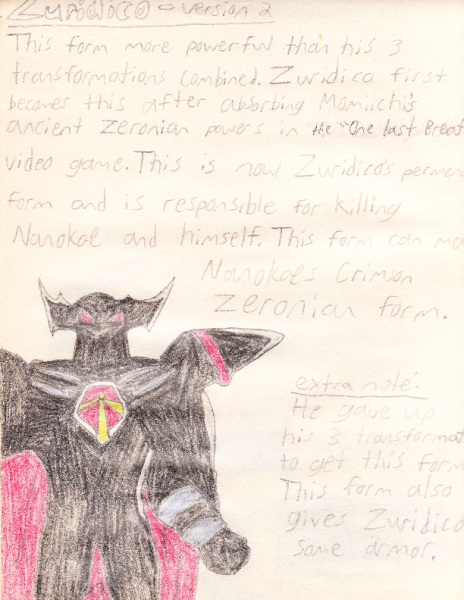 Zuridico - version 2
This form more powerful than his 3
transformations combined. Zuridico first
becomes this after absorbing Momiichi's
ancient Zeronian powers in the "One last Breat
video game. This is now Zuridico's permen
form and is responsible for killing
Nanokal and himself. This form can ma
Nanokal's Crimson
Zeronian form.
extra note:
He gave up
his 3 transformat
to get this form
This form also
gives Zuridico
some armor.